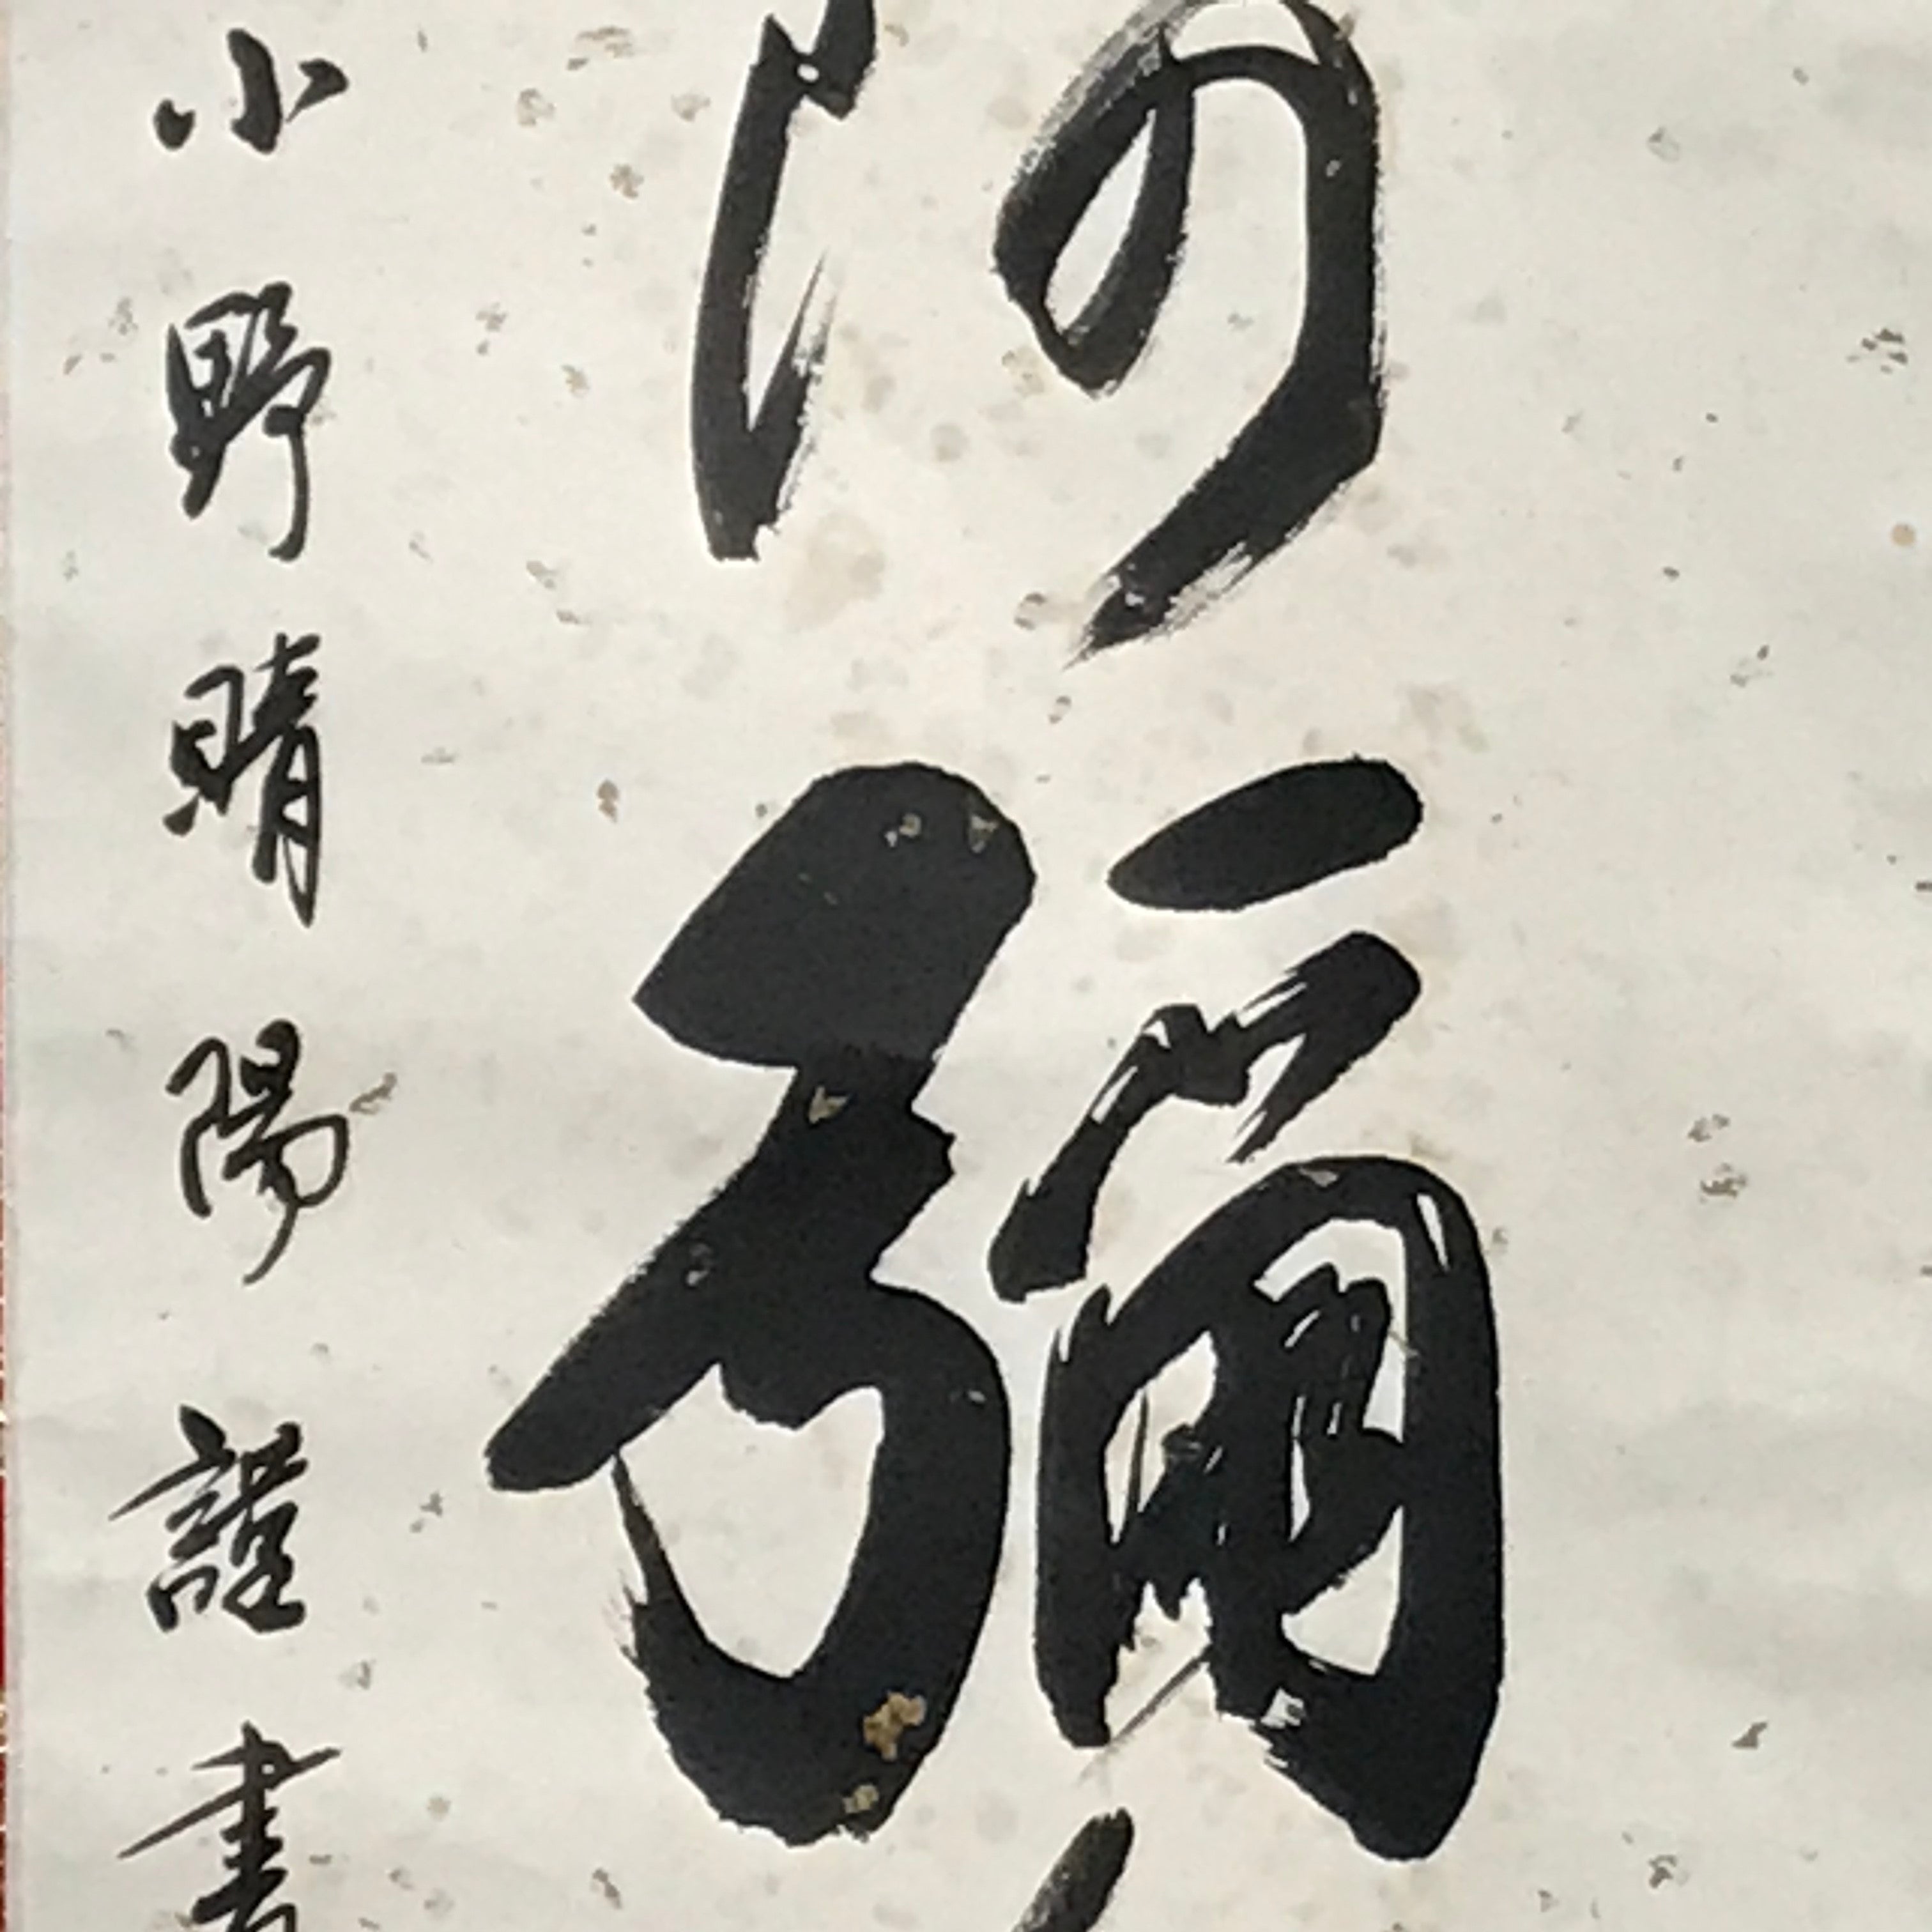 阿彌
小野晴陽謹書